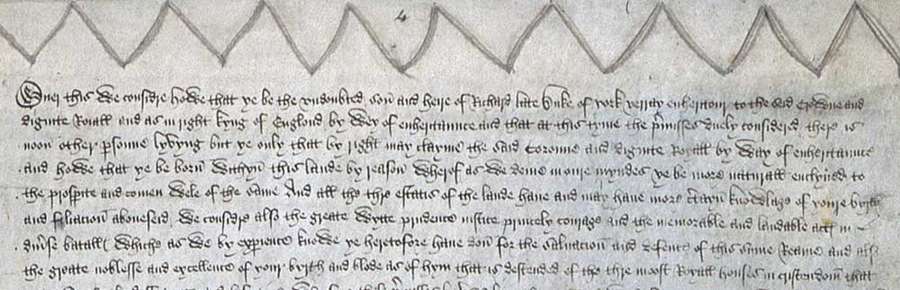 4
Over this we consider howe that ye be the undoubted son and heire of Richard late Duke of York verray enheritour to the said Crowne and
dignite Roiall and as in right Kyng of England by wey of enheritaunce and that at this tyme the premisses duely considered there is
noon other persoune lyvyng but ye only that by right may clayme the said Coroune and dignite Roiall by wey of enheritaunce
and howe that ye be born withyn this lande by reason wherof as we deme in oure myndes ye be more naturally enclyned to
the prosperite and comen wele of the same And all the thre estatis of the lande have and may have more certayn knowlage of youre byrth
and filiation aboveseid We considre also the greate wytte prudence justice princely courage and the memorable and laudable actes in
diverse batalls whiche as we by experience knowe ye heretofore have don for the salvacion and defence of this same Reame and also
the greate noblesse and excellence of your byrth and blode as of hym that is descended of the thre moost Roiall houses in cristendom that